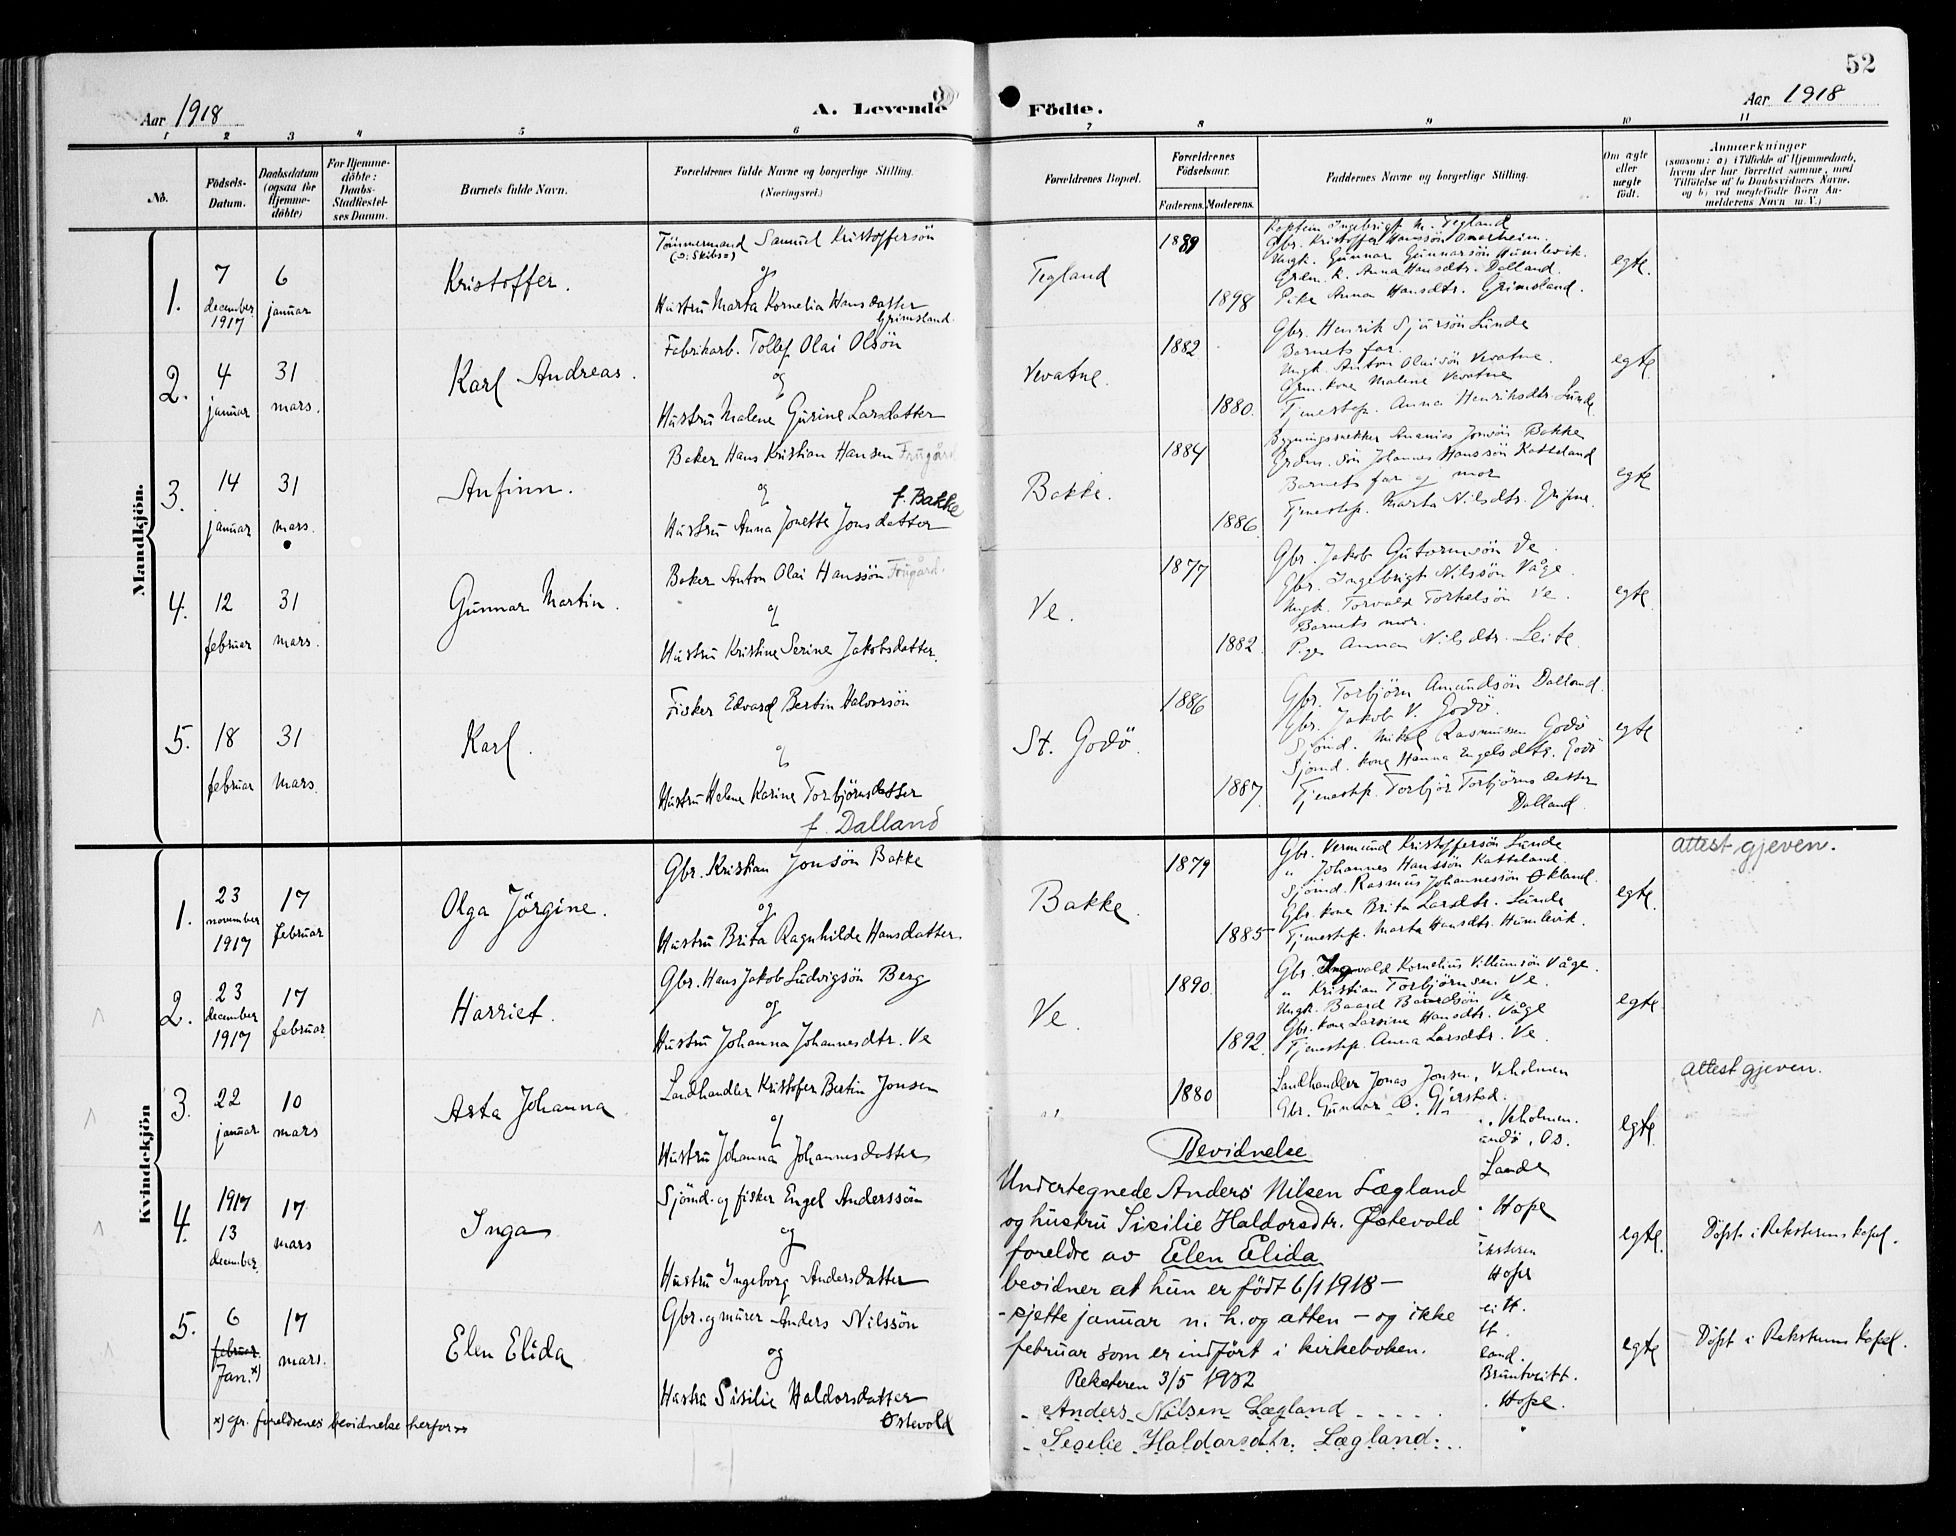 52
Aar 1918
A. Levende Födte.
Aar 1918
1 2 3 4 5 6 7 8 9 10 11
No.
Födsels-Datum.
Daabsdatum (ogsaa for Hjemme-döbte)
For Hjemme-döbte: Daabs-Stadfæstel-ses Datum.
Barnets fulde Navn.
Forældrenes fulde Navne og borgerlige Stilling. (Næringsvei.)
Forældrenes Bopæl.
Forældrenes Födselsaar.
Faderens. Moderens.
Faddernes Navne og borgerlige Stilling.
Om ægte eller uægte födt.
Anmærkninger
(saasom: a) i Tilfælde af Hjemmedaab, hvem der har forrettet samme, med Tilföielse af to Daabsvidners Navne, og b) ved uegtefödte Börn An-melderens Navn m. V.)
Mandkjön.
1.
7 december 1917
6 januar
Kristoffer.
Tömmermand (: Skibs:) Samuel Kristoffersön
og
Hustru Marta Kornelia Hansdatter Grimsland.
Tegland
1889
1898
Ingebrigt M. Tegland
Gbr. Kristoffer Hanssön Omarheim.
Ungk. Gunnar Gunnarsön Humlevik.
Grdm. k. Anna Hansdtr. Dalland.
Pike Anna Hansdtr. Grimsland.
egte.
2.
4 januar
31 mars.
Karl Andreas.
Fabrikarb. Tollef Olai Olsön
og
Hustru Malene Gurine Larsdatter
Vevatne.
1882
1880.
Gbr. Henrik Sjursön Lunde
Barnets far.
Ungk. Anton Olaisön Vevatne.
Grm. kone Malene Vevatne
Tjenestep. Anna Henriksdtr. Lunde
egte
3.
14 januar
31 mars.
Anfinn.
Baker Hans Kristian Hansen Frugård
og
f. Bakke
Hustru Anna Jonette Jonsdatter
Bakke.
1884
1886
Bygningssnekker Ananias Jonsön Bakke
Grdm. sön Johannes Hanssön Katteland
Barnets far og mor
Tjenestep. Marta Nilsdtr.
egte
4.
12 februar
31 mars.
Gunnar Martin.
Baker Anton Olai Hanssön Frugård.
og
Hustru Kristine Serine Jakobsdatter.
Ve.
1877
1882
Gbr. Jakob Gutormsön Ve
Gbr. Ingebrigt Nilssön Våge.
Ungk. Torvald Torkelsön Ve.
Barnets mor.
Pige Anna Nilsdtr. Leite.
egte
5.
18 februar
31 mars.
Karl.
Fisker Edvard Bertin Halvorsön
og
Hustru Helene Karine Torbjörnsdatter
f. Dalland
St. Godö.
1886
1887.
Gbr. Torbjörn Amundsön Dalland.
Gbr. Jakob V. Godö.
Sjömd. Mikal Rasmussen Godö
Sjömd. kone Hanna Engelsdtr. Godö
Tjenestep. Torbjör Torbjörnsdatter
Dalland.
egte
Kvindekjön
1.
23 november 1917
17 februar
Olga Jörgine.
Gbr. Kristian Jonsön Bakke
og
Hustru Brita Ragnhilde Hansdatter.
Bakke.
1879
1885
Gbr. Vermund Kristoffersön Lunde
" Johannes Hanssön Katteland.
Sjömd. Rasmus Johannessön Økland.
Gbr. kone Brita Larsdtr. Lunde
Tjenestep. Marta Hansdtr. Humlevik.
egte.
attest gjeven.
2.
23 december 1917
17 februar
Harriet.
Gbr. Hans Jakob Ludvigsön Berg
og
Hustru Johanna Johannesdtr. Ve
Ve.
1890.
1892.
Gbr. Ingvald Kornelius Villumsön Våge.
" Kristian Torbjörnsen Ve.
Ungk. Baard Baardsön Ve
Gbr. kone Larsine Hansdtr. Våge
Tjenestep. Anna Larsdtr. Ve.
egte
3.
22 januar
10 mars
Asta Johanna
Landhandler Kristofer Bertin Jonsen
og
Hustru Johanna Johannesdatter
1880
Landhandler Jonas Jonsen, Veholmen
Gbr. Gunnar O. Gjerstad.
Veholmen.
Os.
egte.
attest gjeven.
4.
1917 13 december.
17 mars
Inga
Sjömd. og fisker Engel Anderssön
og
Hustru Ingeborg Andersdatter
Hope
Hope
egte.
Döpt i Reksteren kapel.
5.
6 februar. Jan. x)
17 mars.
Elen Elida
Gbr. og murer Anders Nilssön
og
Hustru Sisilie Haldorsdatter
Østevold
land.
Bruntveitt.
Hope.
egte
Döpt i Reksteren kapel.
x) gr. foreldrenes bevidnelse herfor
Bevidnelse
Undertegnede Anders Nilsen Lægland
og hustru Sisilie Haldorsdtr. Østevold
foreldre av Elen Elida
bevidner at hun er født 6/1 1918 —
- sjette januar n. h. og atten — og ikke
februar som er indført i kirkeboken.
Reksteren 3/5 1932
Anders Nilsen Lægland
Sesilie Haldorsdtr. Lægland.